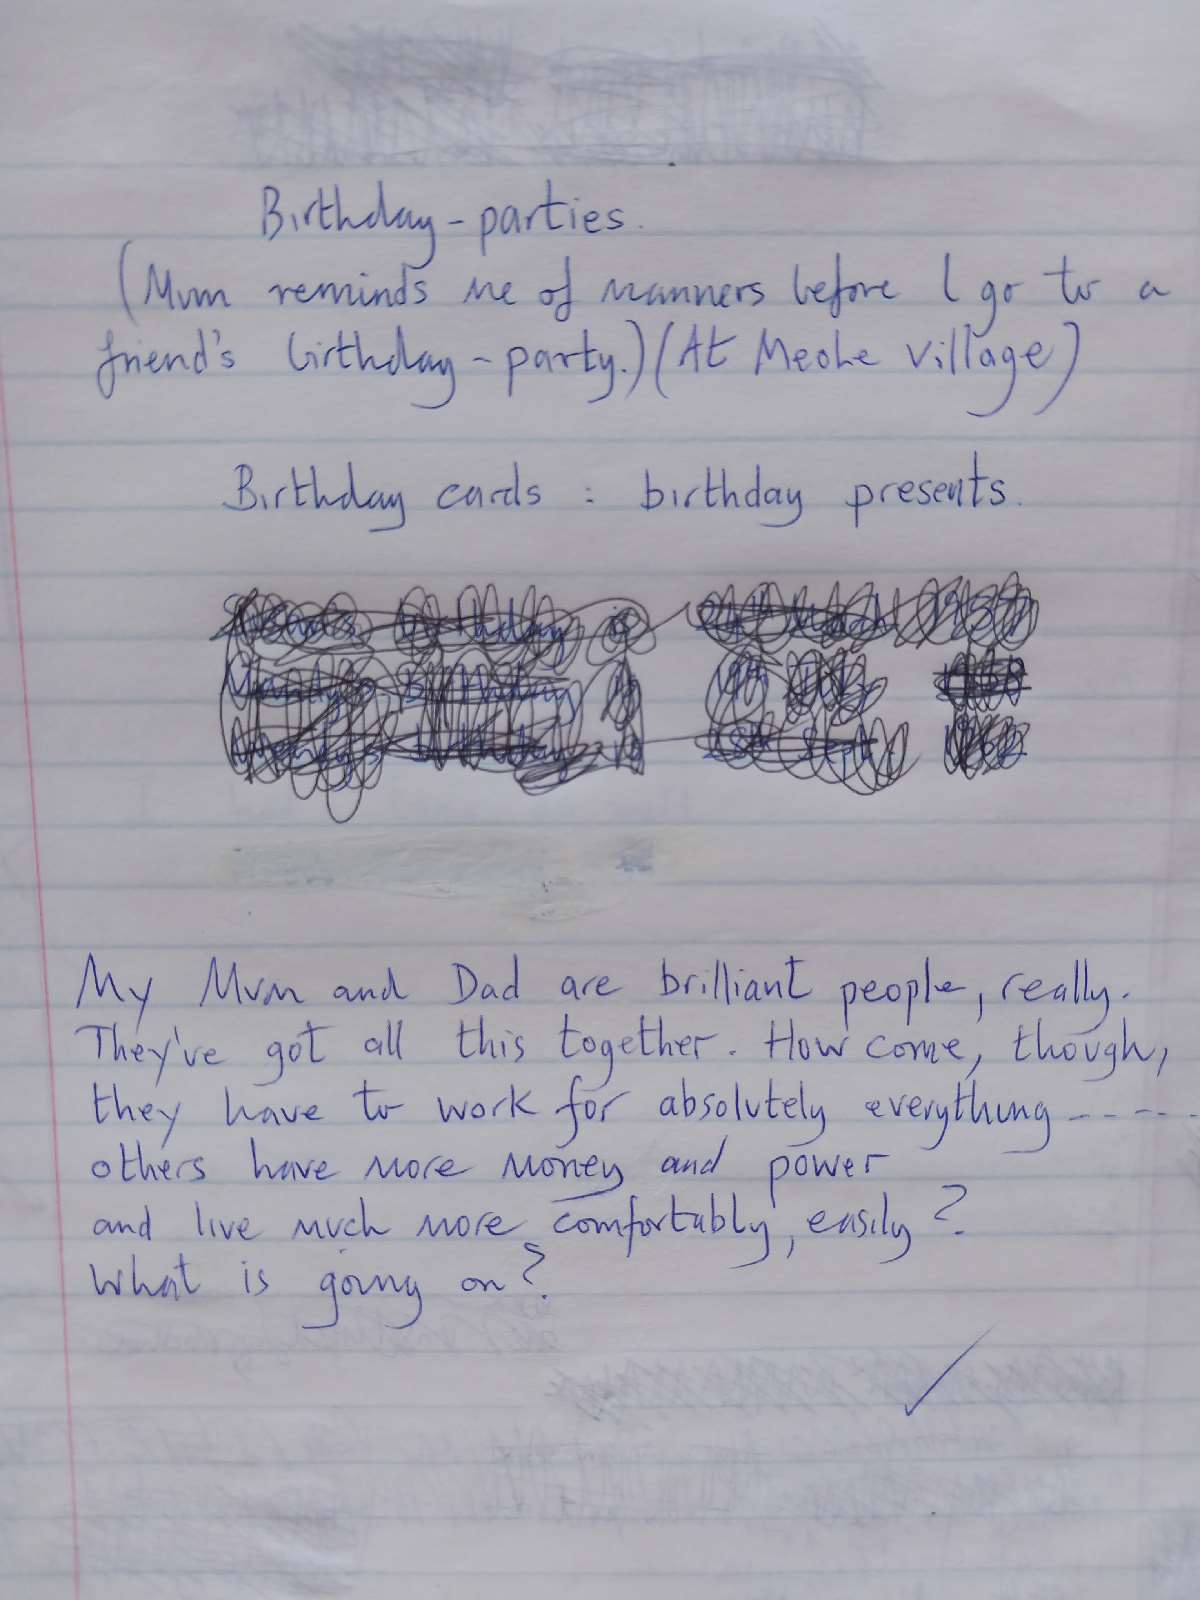 Birthday-parties.
(Mum reminds me of manners before I go to a
friend's birthday-party.) (At Meole Village)
Birthday cards : birthday presents.
My Mum and Dad are brilliant people, really.
They've got all this together. How come, though,
they have to work for absolutely everything -----
others have more money and power
and live much more comfortably, easily?
What is going on?